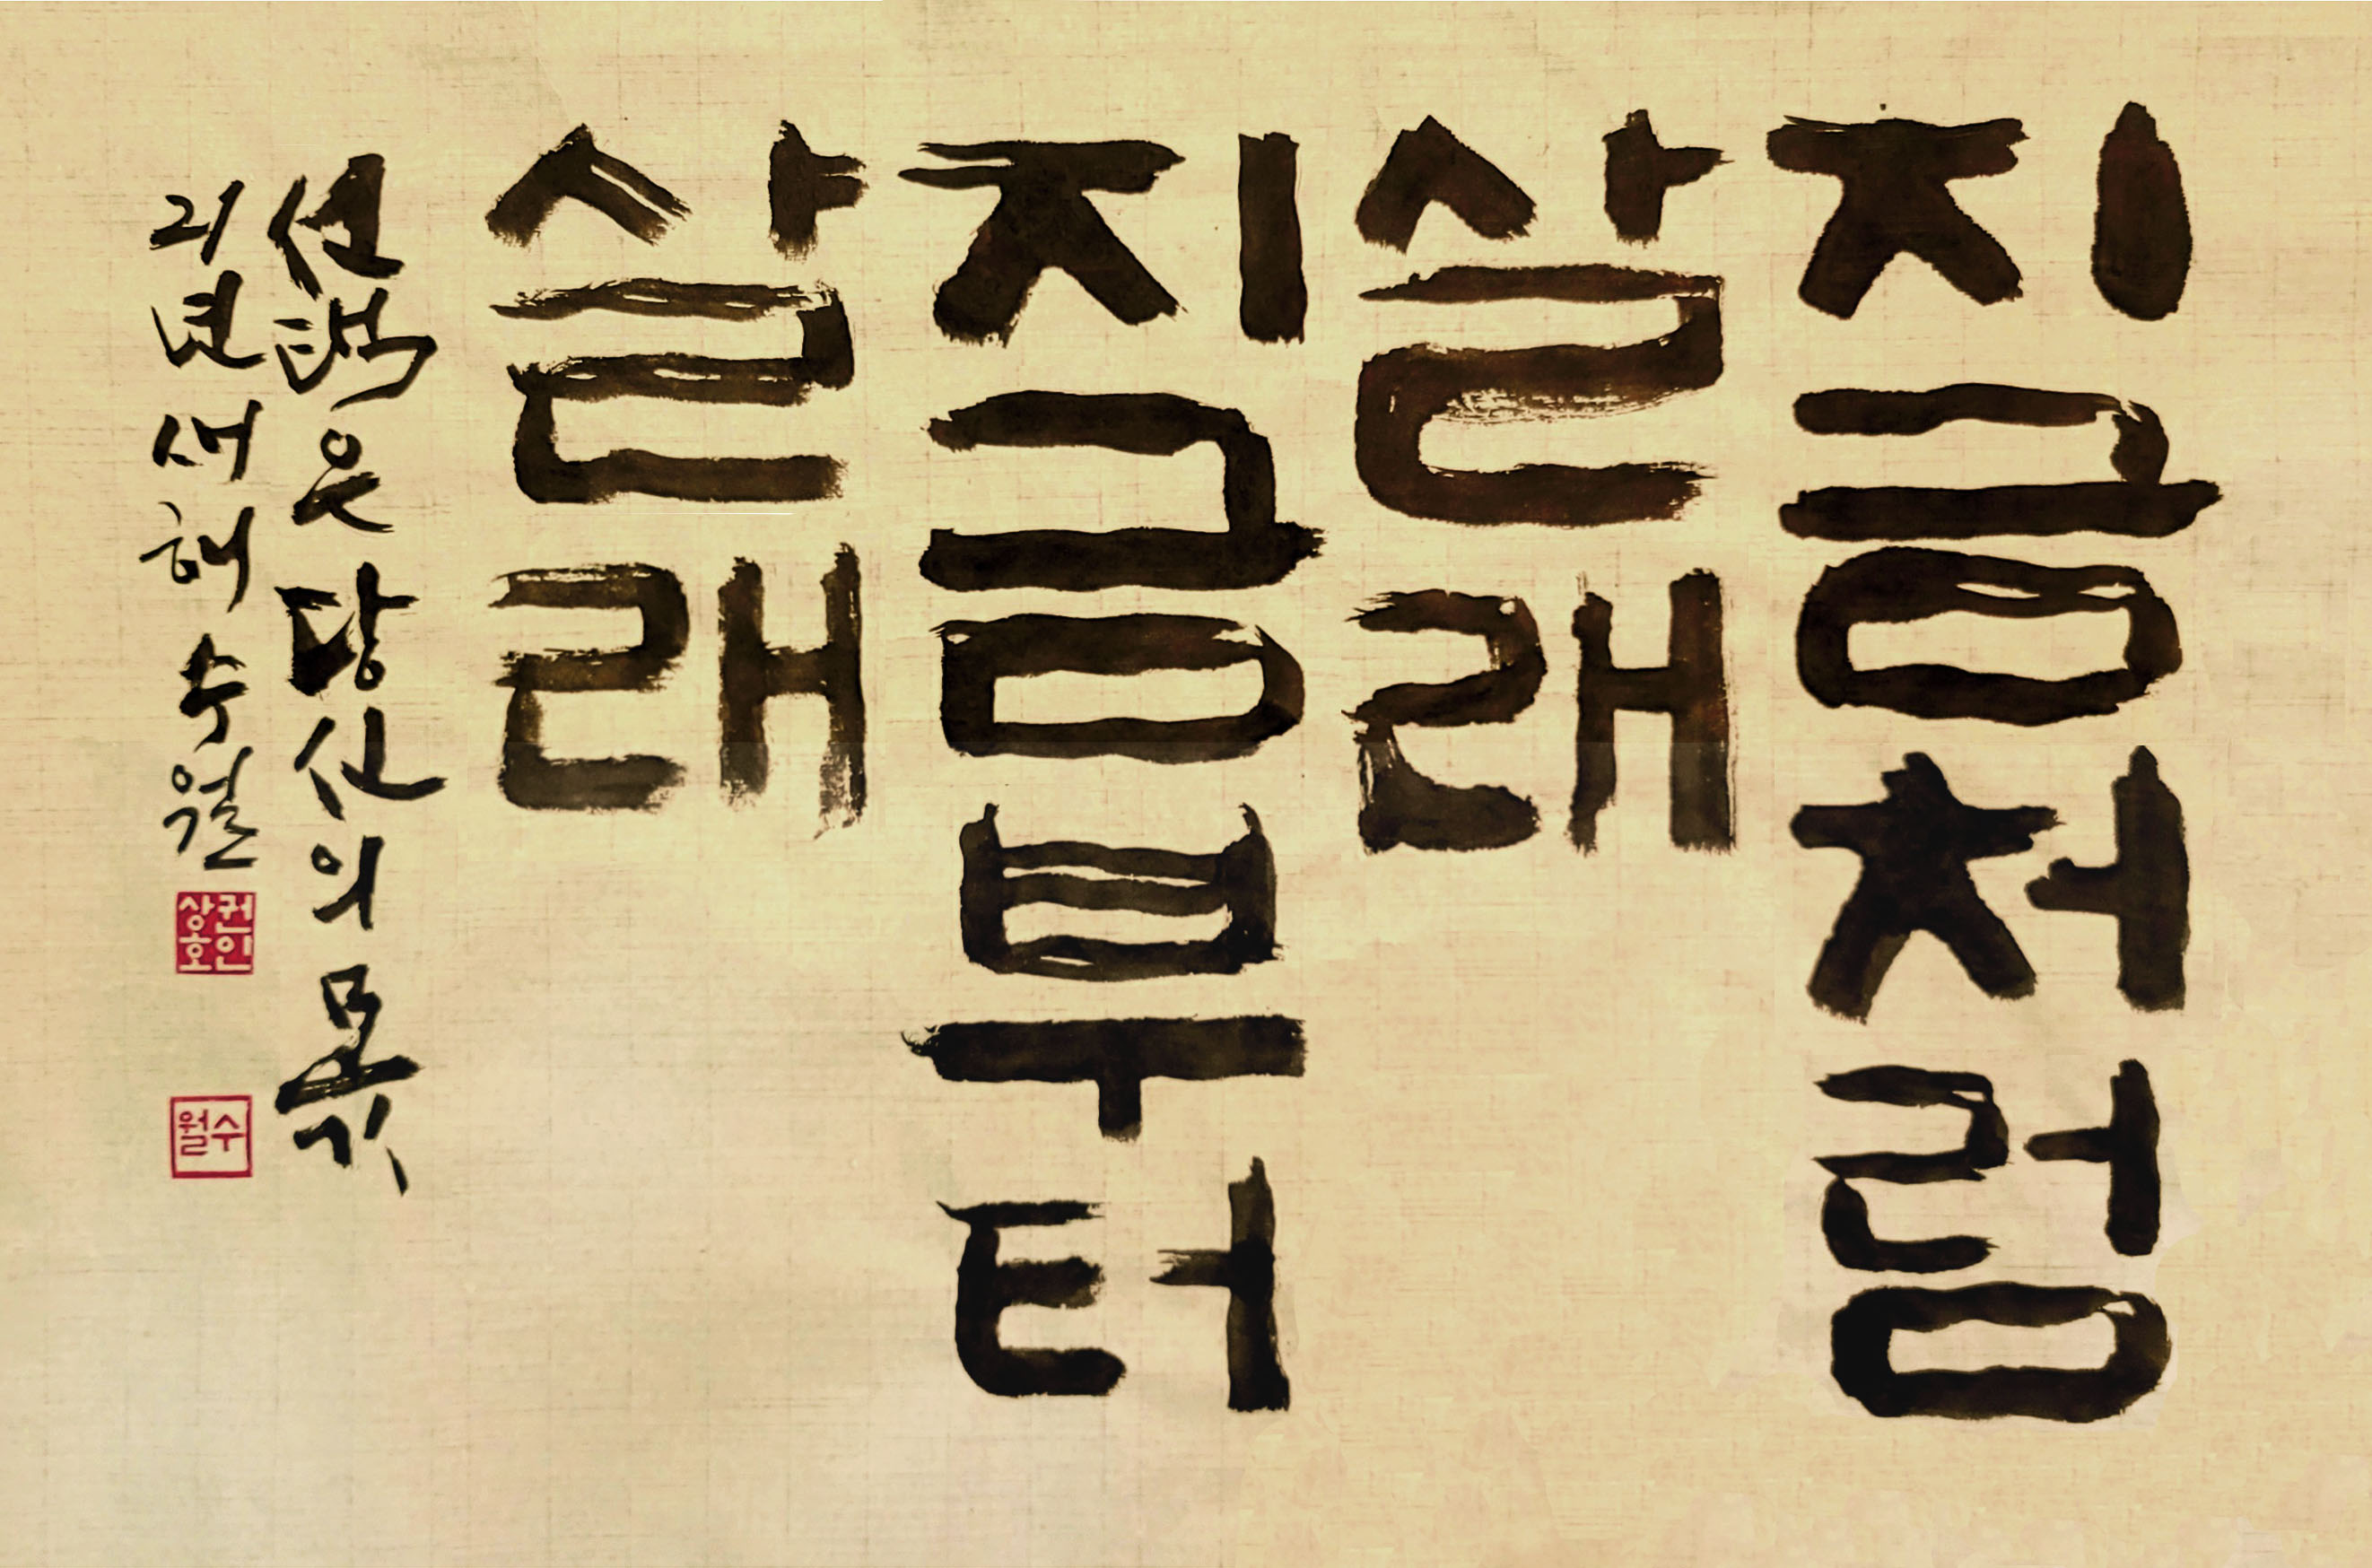 지금처럼
살래
지금부터
살래
선택은 당신의 몫
21년 새해 수월
권인
상호
수월